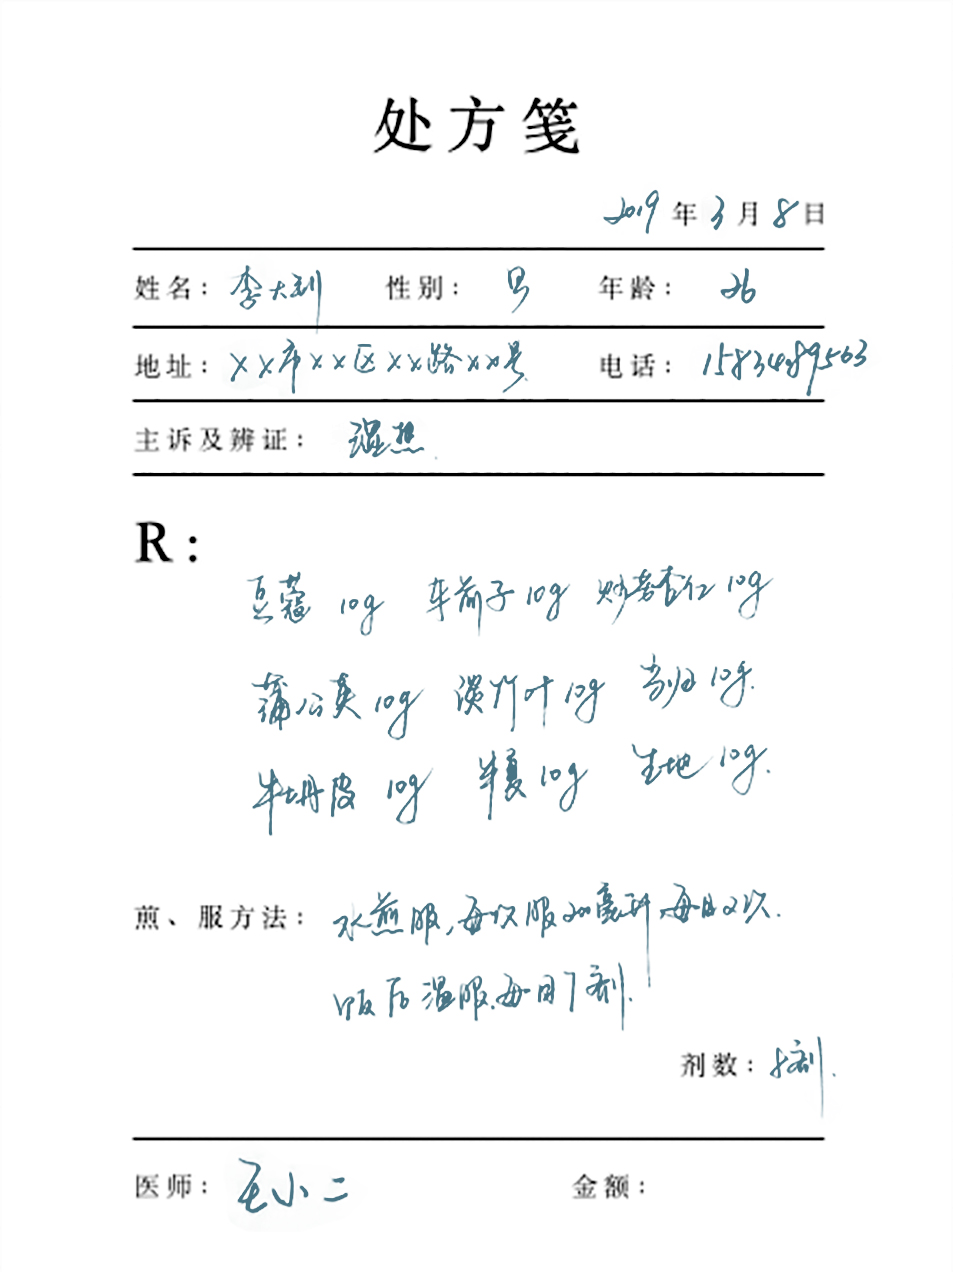 处方笺
2019年3月8日
姓名：李大利 性别：男 年龄：26
地址：××市××区××路××号 电话：15834489563
主诉及辨证：湿热
R：
豆蔻 10g 车前子10g 炒苦杏仁10g
蒲公英10g 淡竹叶10g 当归10g
牡丹皮 10g 半夏10g 生地10g
煎、服方法：水煎服,每次服200毫升,每日2次.
饭后温服,每日1剂.
剂数：8剂.
医师：王小二 金额：